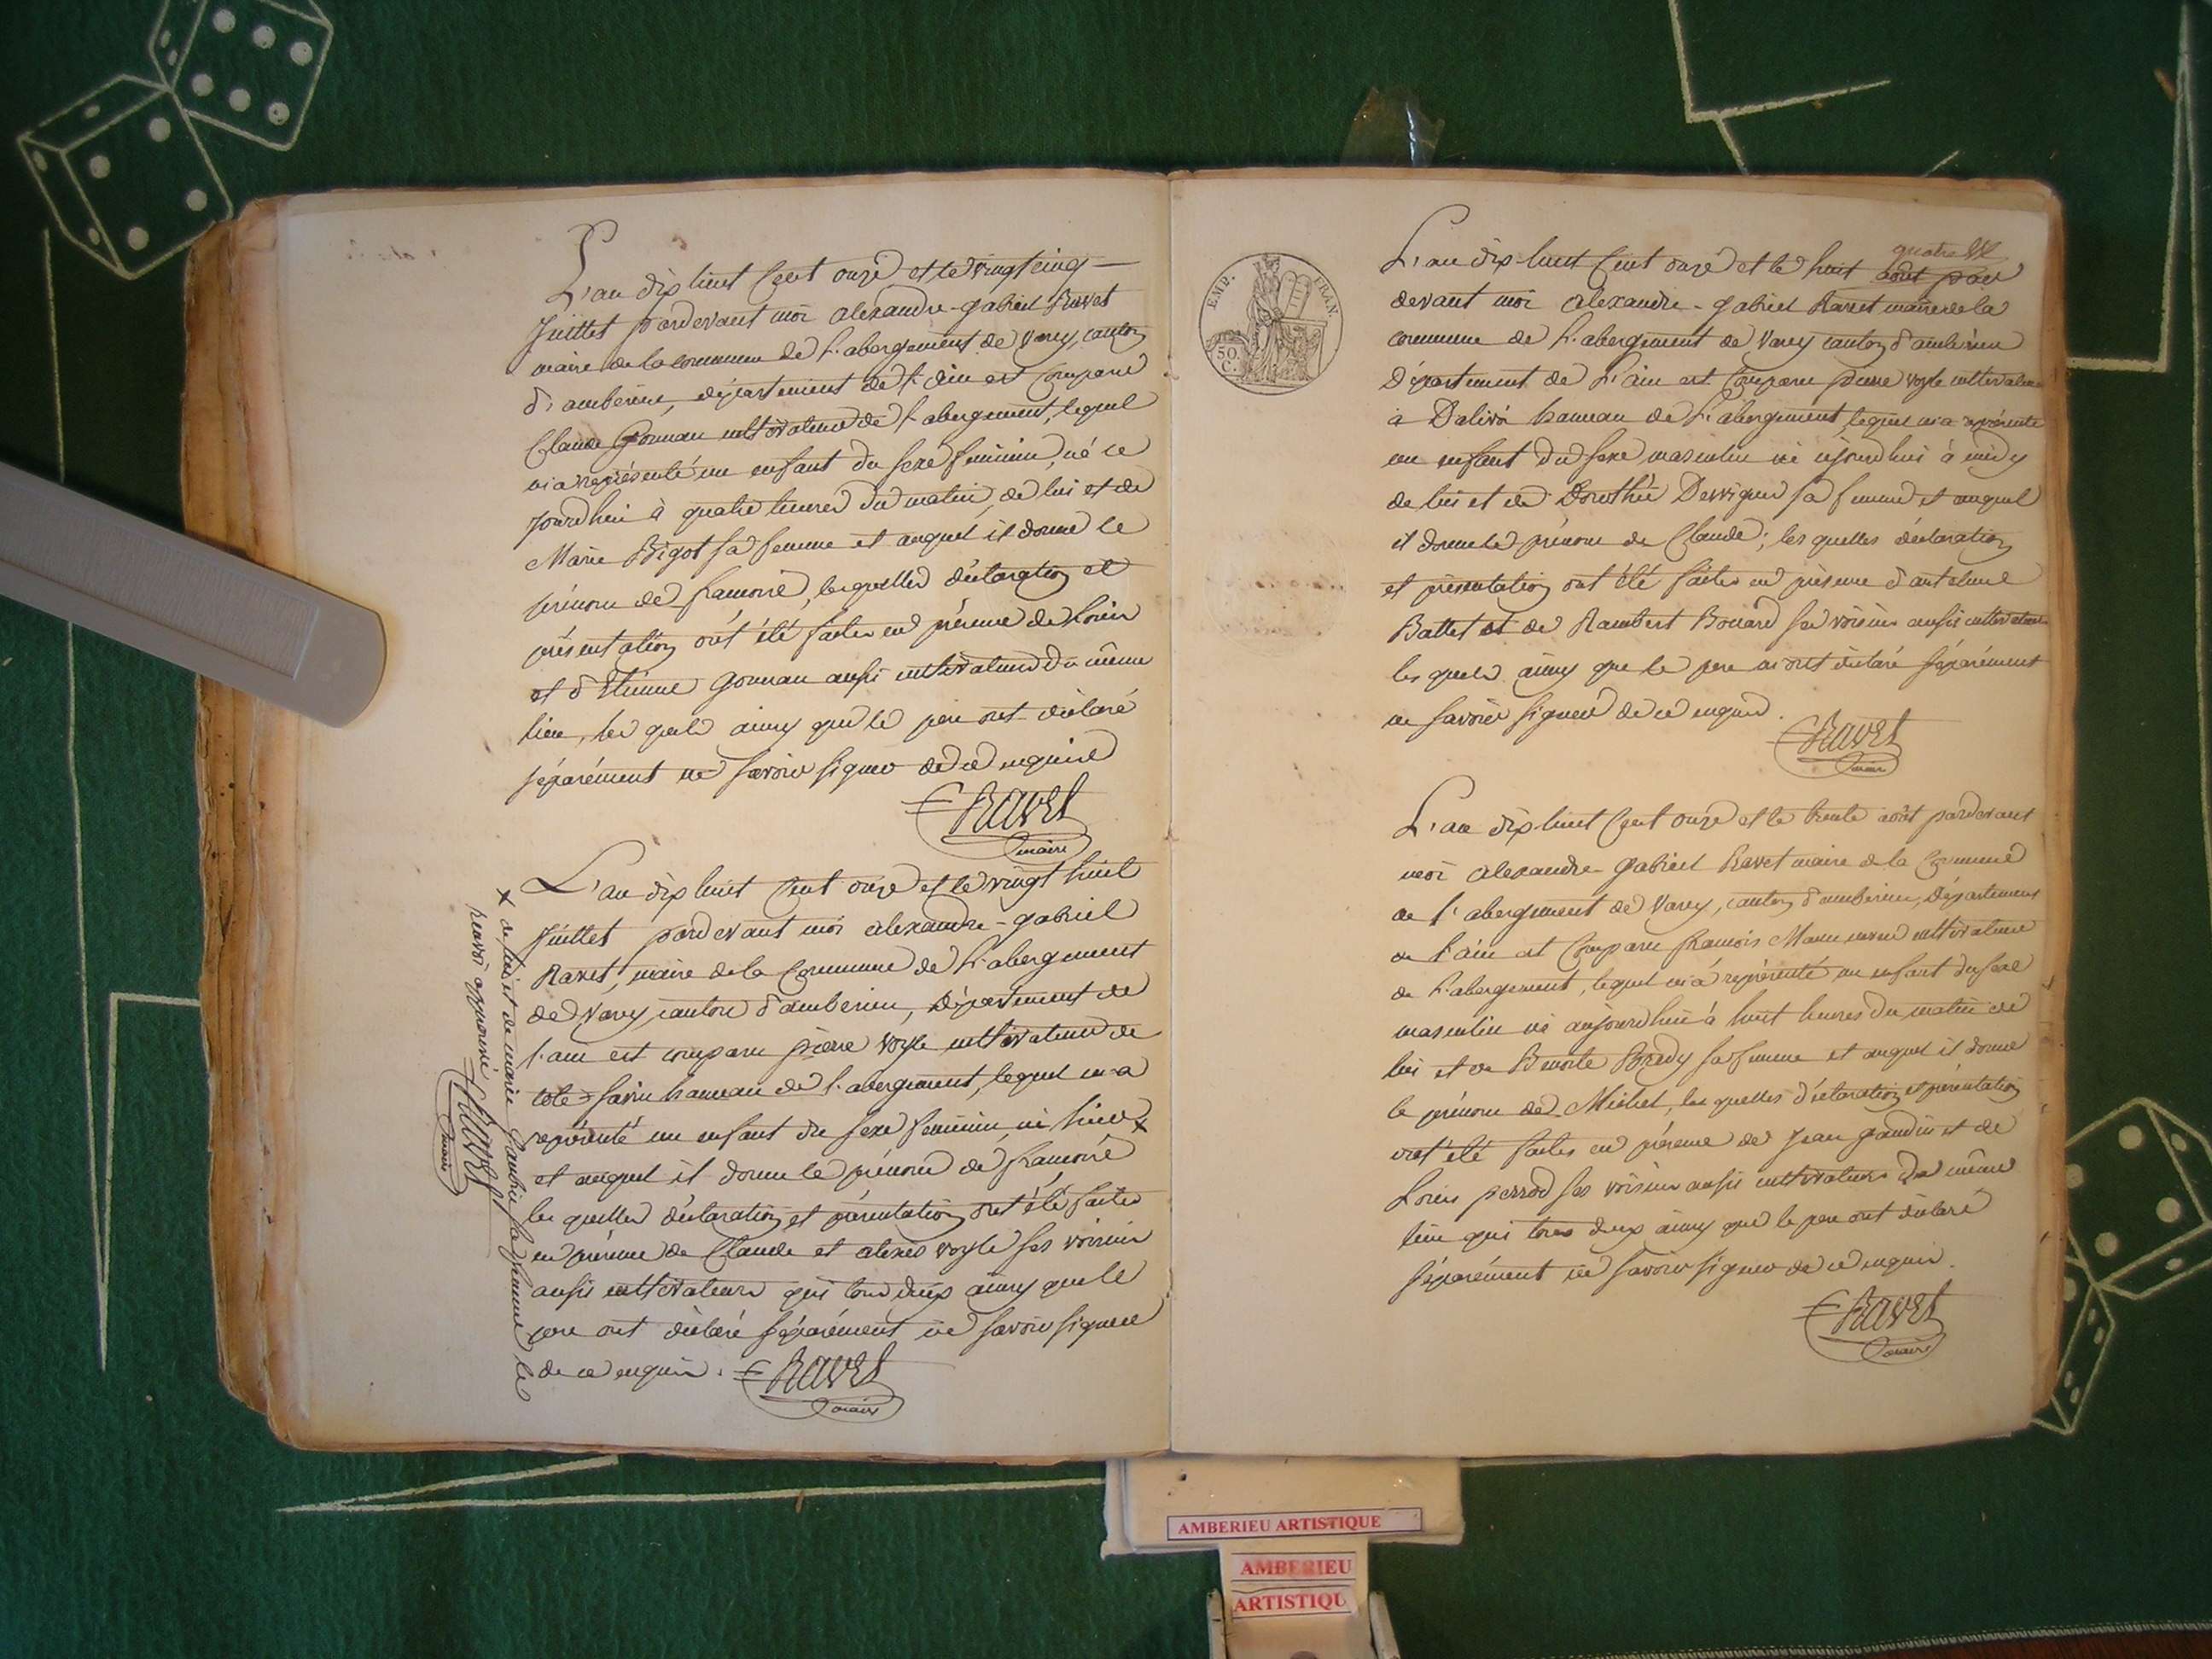 L'an dix huit Cent onze et le vingt cinq
Juillet pardevant moi alexandre-gabriel Ravet
maire de la commune de L'abergement de Varey, canton
d'ambérieu, département de l'ain est Comparu
Claude Gonnau cultivateur de l'abergement, lequel
m'a représenté un enfant du sexe féminin, né ce
jourdhui à quatre heures du matin, de lui et de
Marie Bigot sa femme et auquel il donne le
prénom de, les quelles déclaration et
présentation ont été faites en présence de Louis
et d'Etienne Gonnau aussi cultivateurs du même
lieu, les quels ainsy que le pere ont déclaré
séparément ne savoir signer de ce enquis
Ravet
maire
L'an dix huit Cent onze et le vingt huit
Juillet pardevant moi alexandre-gabriel
Ravet, maire de la Commune de L'abergement
de Varey canton d'ambérieu, Département de
l'ain est comparu pierre voyle cultivateur de
côte-savin hameau de l'abergement, lequel m'a
représenté un enfant du sexe féminin, né hier x
et auquel il donne le prénom de
les quelles déclaration et présentation ont été faites
en présence de Claude et alexis voyle ses voisins
aussi cultivateurs qui tous deux ainsy que le
pere ont déclaré séparément ne savoir signer
de ce enquis. Ravet
maire
x de lui et de marie sa femme les
renvoi approuvé
Ravet
maire
EMP. FRAN.
50 C.
quatre
L'an dix huit Cent onze et le huit août par
devant moi alexandre-gabriel Ravet maire de la
commune de L'abergement de Varey canton d'ambérieu
Département de L'ain est Comparu pierre voyle cultivateur
à Dalivoi hameau de L'abergement, lequel m'a représenté
un enfant du sexe masculin né cejourdhui à midy
de lui et de Dorothée sa femme et auquel
il donne le prénom de Claude; les quelles déclaration
et présentation ont été faites en présence d'anthelme
Battet et de Rambert Bouard ses voisins aussi cultivateurs
les quels ainsy que le pere m'ont déclaré séparément
ne savoir signer de ce enquis.
Ravet
maire
L'an dix huit Cent onze et le trente août pardevant
moi alexandre-gabriel Ravet maire de la Commune
de l'abergement de Varey, canton d'ambérieu, Département
de l'ain est Comparu françois cultivateur
de L'abergement, lequel m'a représenté un enfant du sexe
masculin né aujourdhui à huit heures du matin de
lui et de Benoite sa femme et auquel il donne
le prénom de Michel, les quelles déclaration et présentation
ont été faites en présence de Jean gaudin et de
Louis perrod ses voisins aussi cultivateurs du même
lieu qui tous deux ainsy que le pere ont déclaré
séparément ne savoir signer de ce enquis.
Ravet
maire
AMBERIEU ARTISTIQUE
AMBERIEU
ARTISTIQU